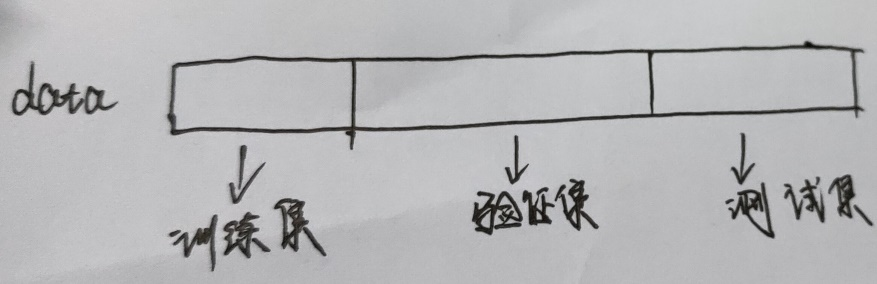 data
训练集
验证集
测试集